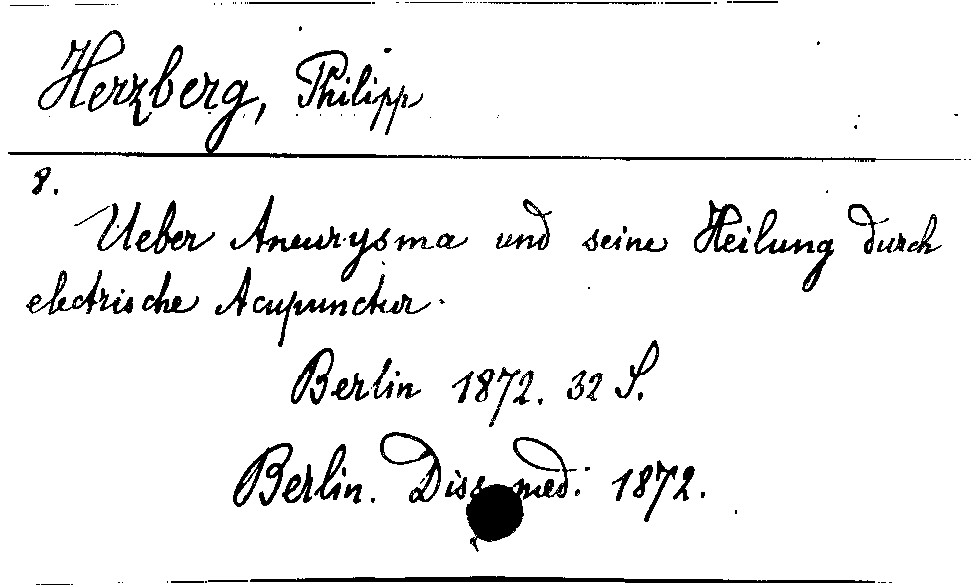 Herzberg, Philipp
8.
Ueber Aneurysma und seine Heilung durch
electrische Acupunctur.
Berlin 1872. 32 S.
Berlin. Diss. med. 1872.